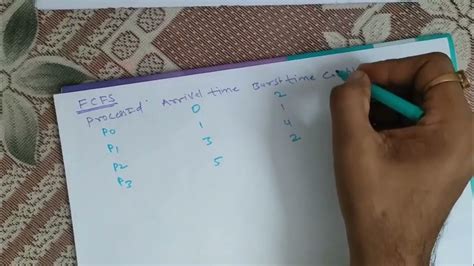 FCFS
ProcessId Arrival time Burst time
P0 0 2
P1 1 1
P2 3 4
P3 5 2